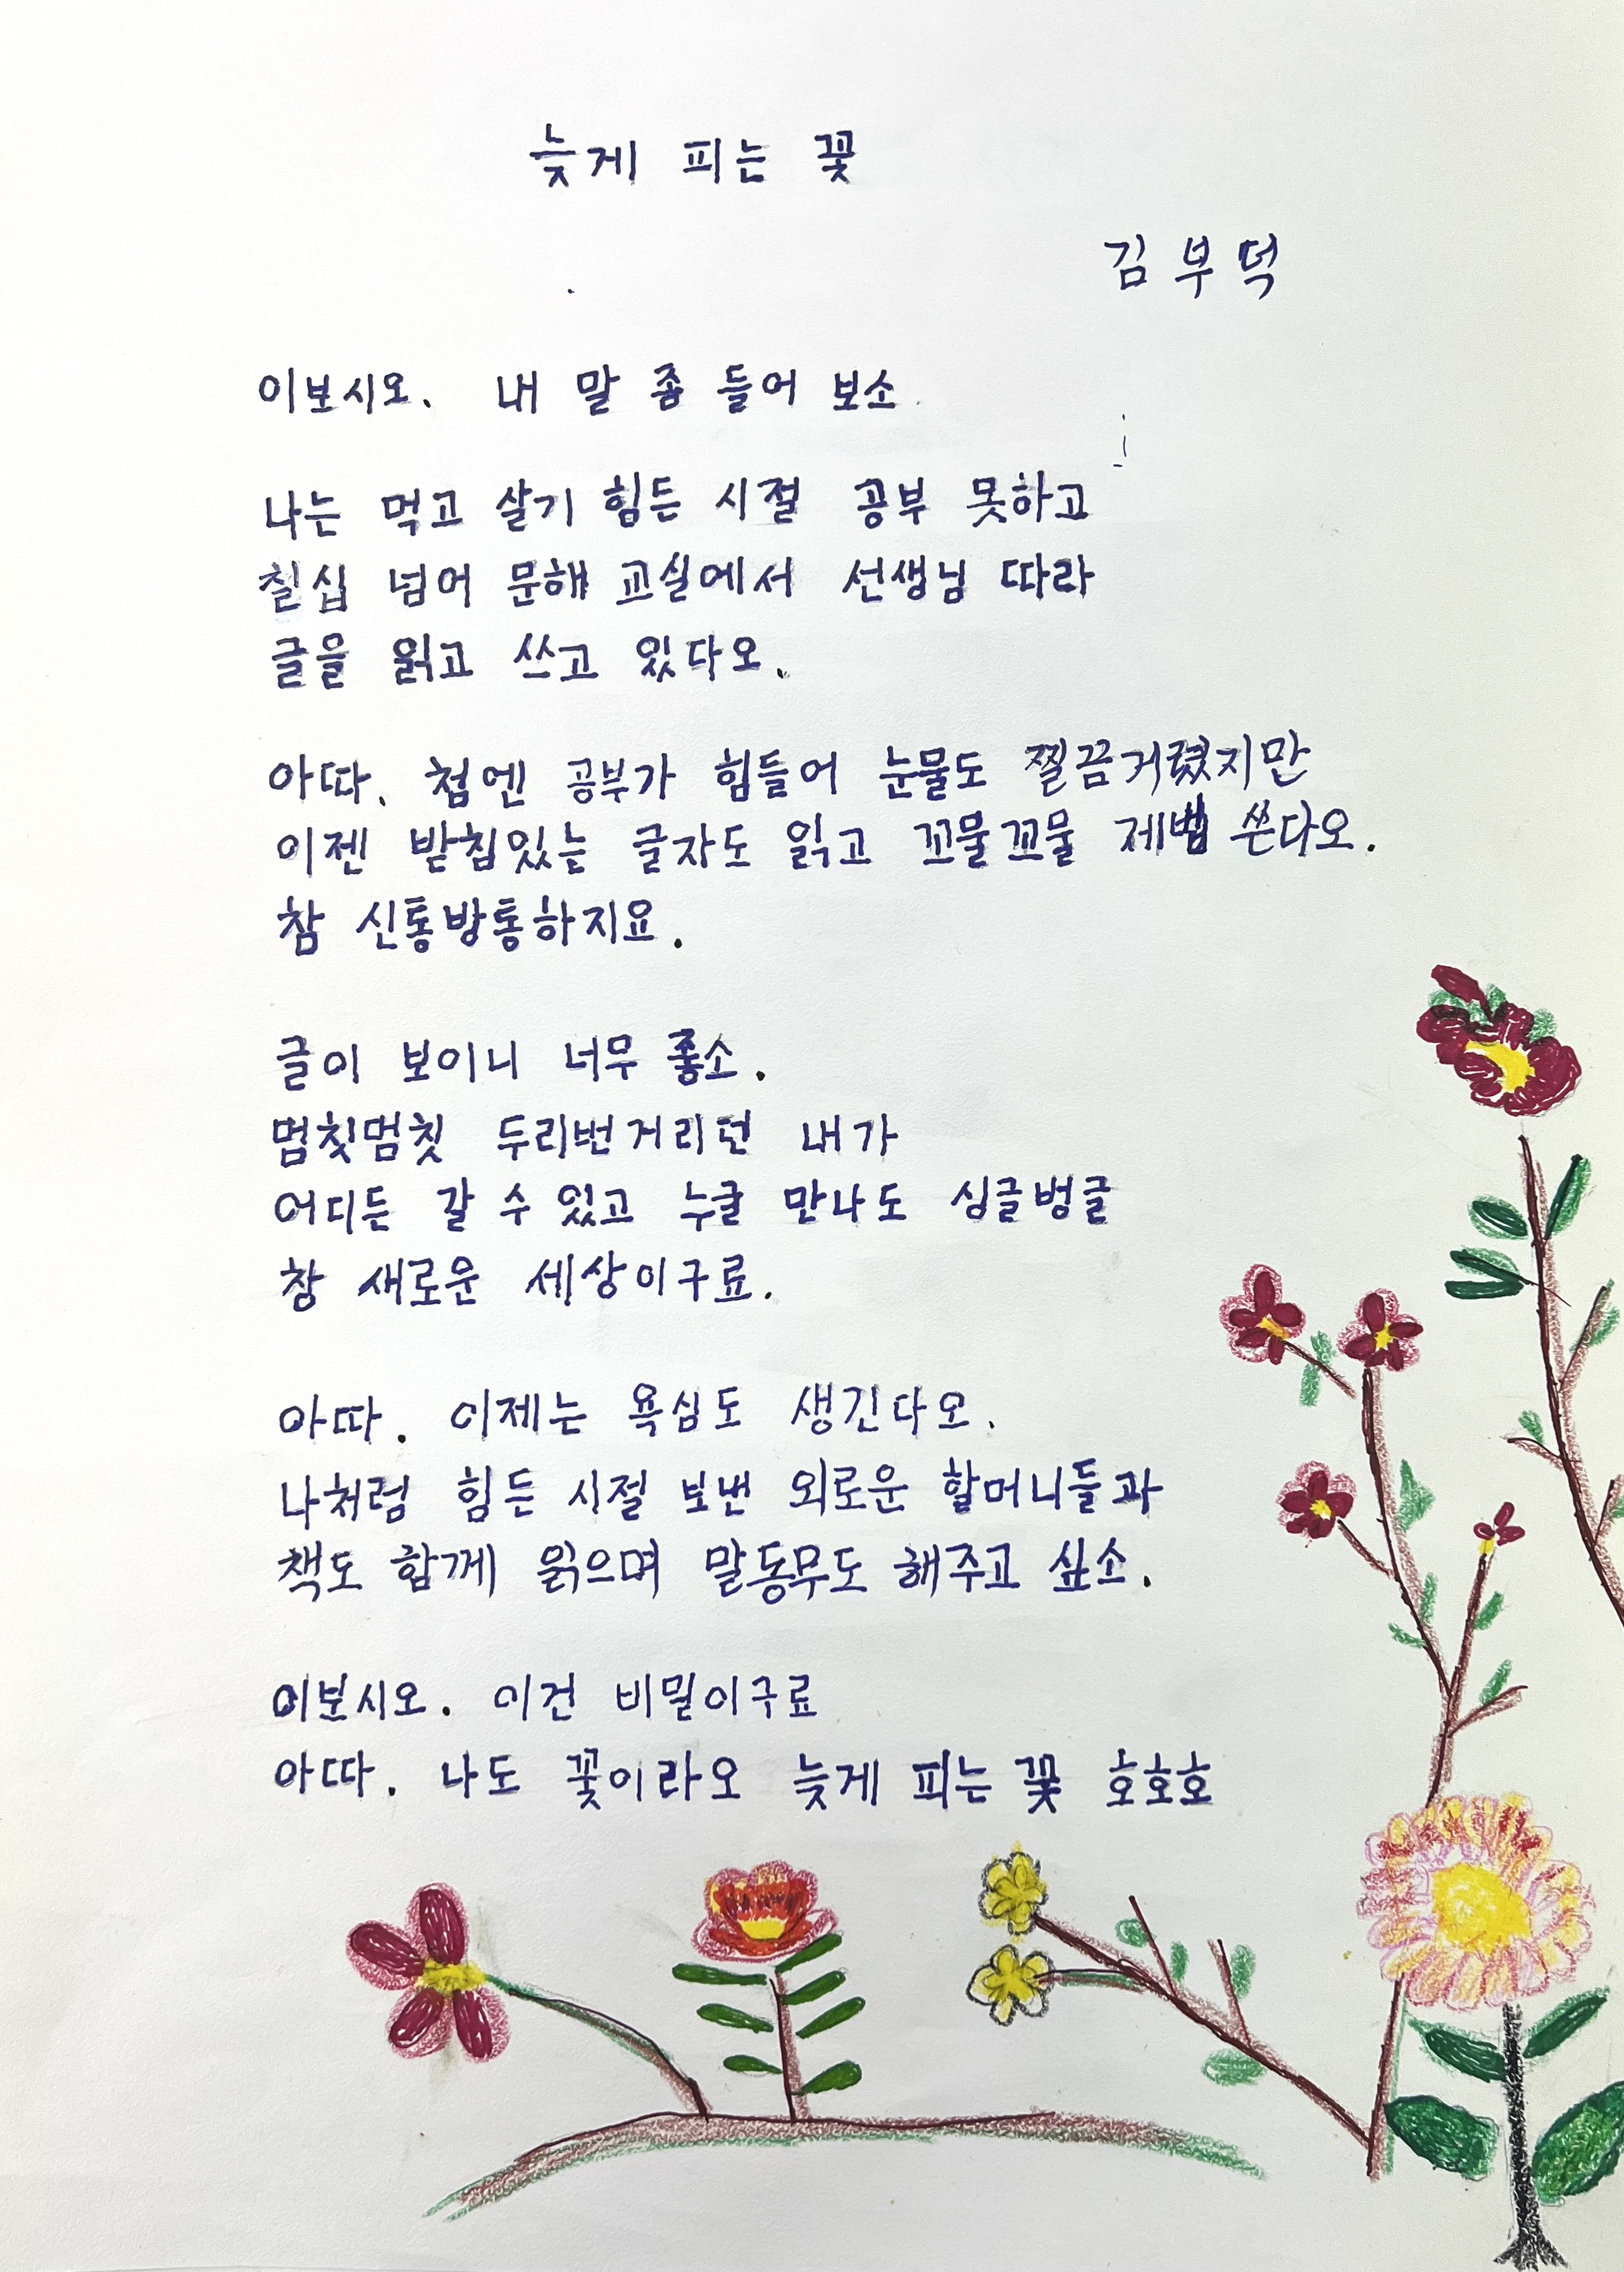 늦게 피는 꽃
김부덕
이보시오. 내 말 좀 들어 보소
나는 먹고 살기 힘든 시절 공부 못하고
칠십 넘어 문해 교실에서 선생님 따라
글을 읽고 쓰고 있다오.
아따. 첨엔 공부가 힘들어 눈물도 찔끔거렸지만
이젠 받침있는 글자도 읽고 꼬물꼬물 제법 쓴다오.
참 신통방통하지요.
글이 보이니 너무 좋소.
멈칫멈칫 두리번거리던 내가
어디든 갈 수 있고 누굴 만나도 싱글벙글
참 새로운 세상이구료.
아따. 이제는 욕심도 생긴다오.
나처럼 힘든 시절 보낸 외로운 할머니들과
책도 함께 읽으며 말동무도 해주고 싶소.
이보시오. 이건 비밀이구료
아따. 나도 꽃이라오 늦게 피는 꽃 호호호